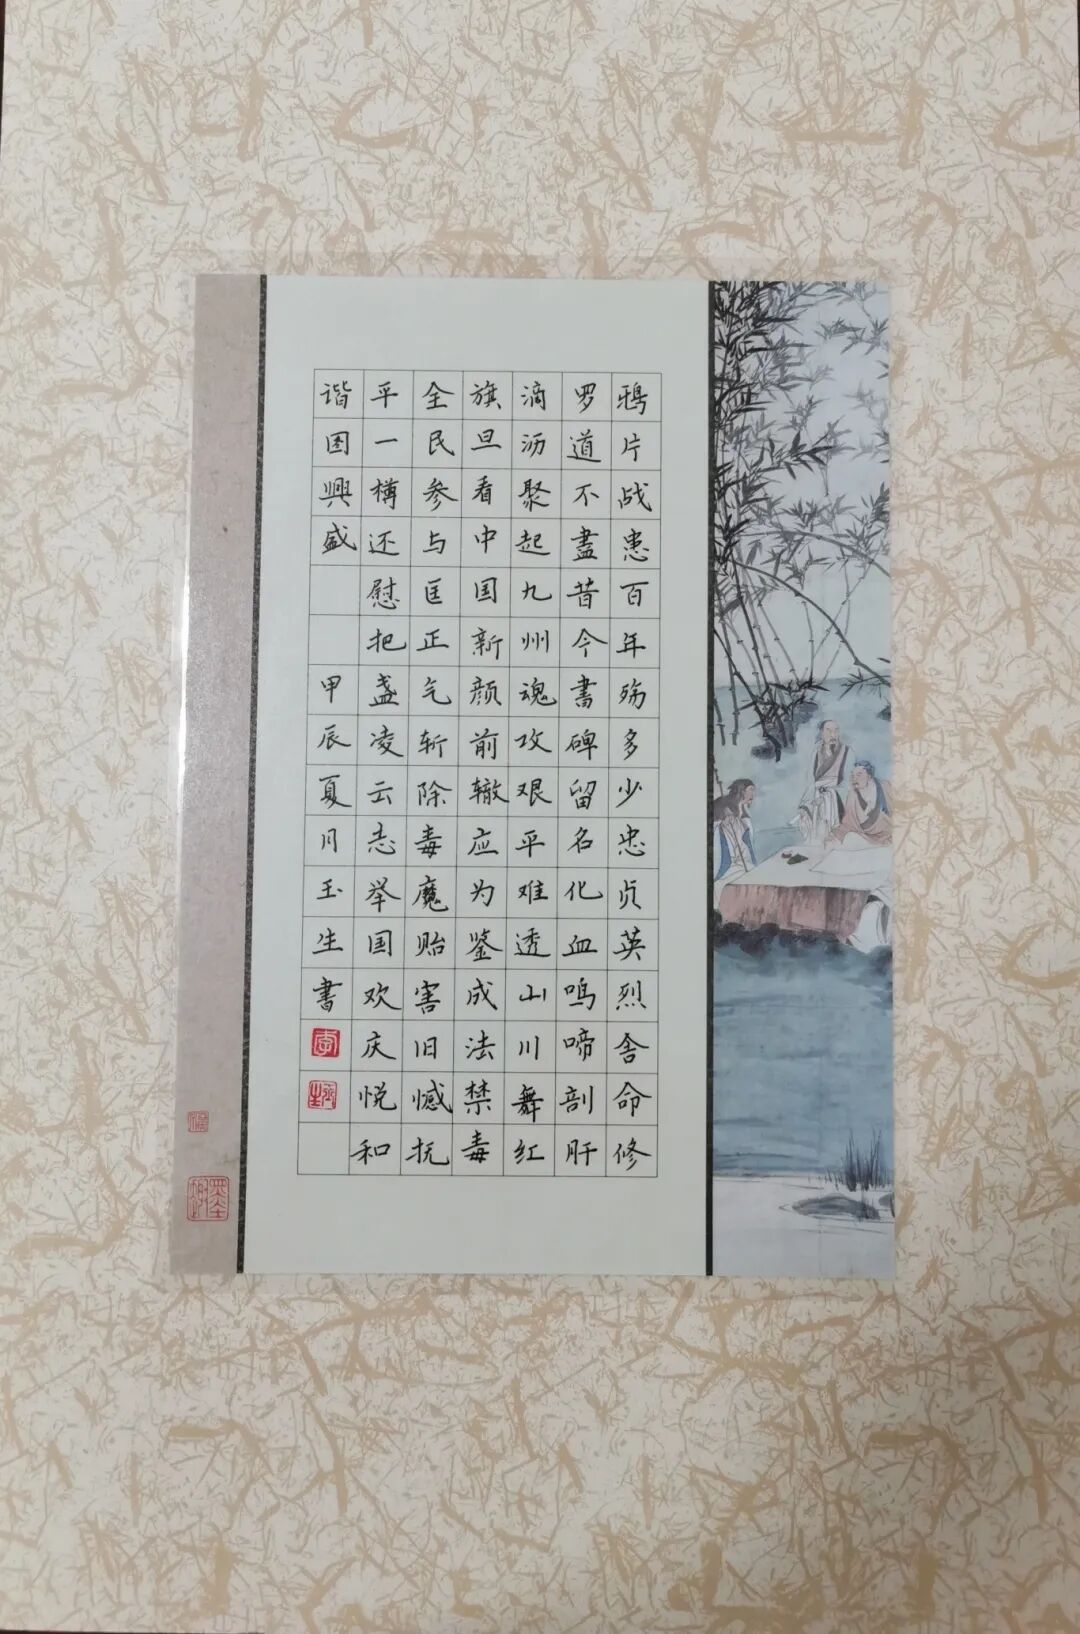 鸦片战患百年殇多少忠贞英烈舍命修
罗道不盡昔今書碑留名化血鸣啼剖肝
滴沥聚起九州魂攻艰平难透山川舞红
旗旦看中国新颜前辙应为鉴成法禁毒
全民参与匡正气斩除毒魔贻害旧憾抚
平一樽还慰把盏凌云志举国欢庆悦和
谐国興盛
甲辰夏月玉生書